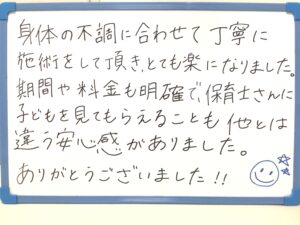 身体の不調に合わせて丁寧に
施術をして頂き、とても楽になりました。
期間や料金も明確で、保育士さんに
子どもを見てもらえることも他とは
違う安心感がありました。
ありがとうございました!!